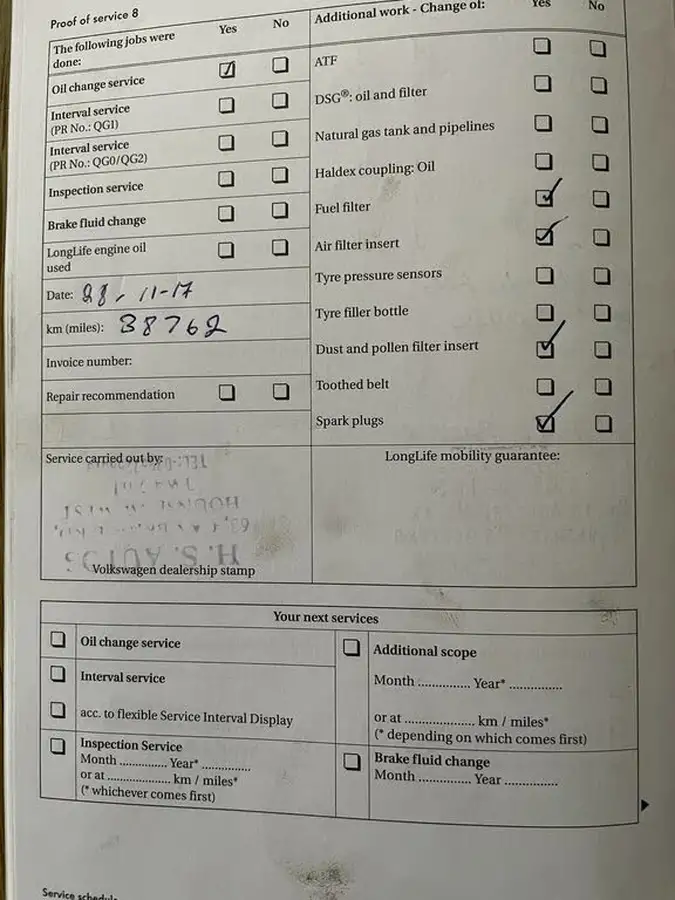 Proof of service 8
The following jobs were done: Yes No
Oil change service
Interval service
(PR No.: QG1)
Interval service
(PR No.: QG0/QG2)
Inspection service
Brake fluid change
LongLife engine oil
used
Date: 28, 11-17
km (miles): 38762
Invoice number:
Repair recommendation
Additional work - Change of: Yes No
ATF
DSG®: oil and filter
Natural gas tank and pipelines
Haldex coupling: Oil
Fuel filter
Air filter insert
Tyre pressure sensors
Tyre filler bottle
Dust and pollen filter insert
Toothed belt
Spark plugs
Service carried out by:
H.S. AUTOS
Volkswagen dealership stamp
LongLife mobility guarantee:
Your next services
Oil change service
Interval service
acc. to flexible Service Interval Display
Inspection Service
Month .............. Year* ..............
or at .................... km / miles*
(* whichever comes first)
Additional scope
Month ............... Year* ...............
or at .................... km / miles*
(* depending on which comes first)
Brake fluid change
Month ............... Year ...............
Service schedule